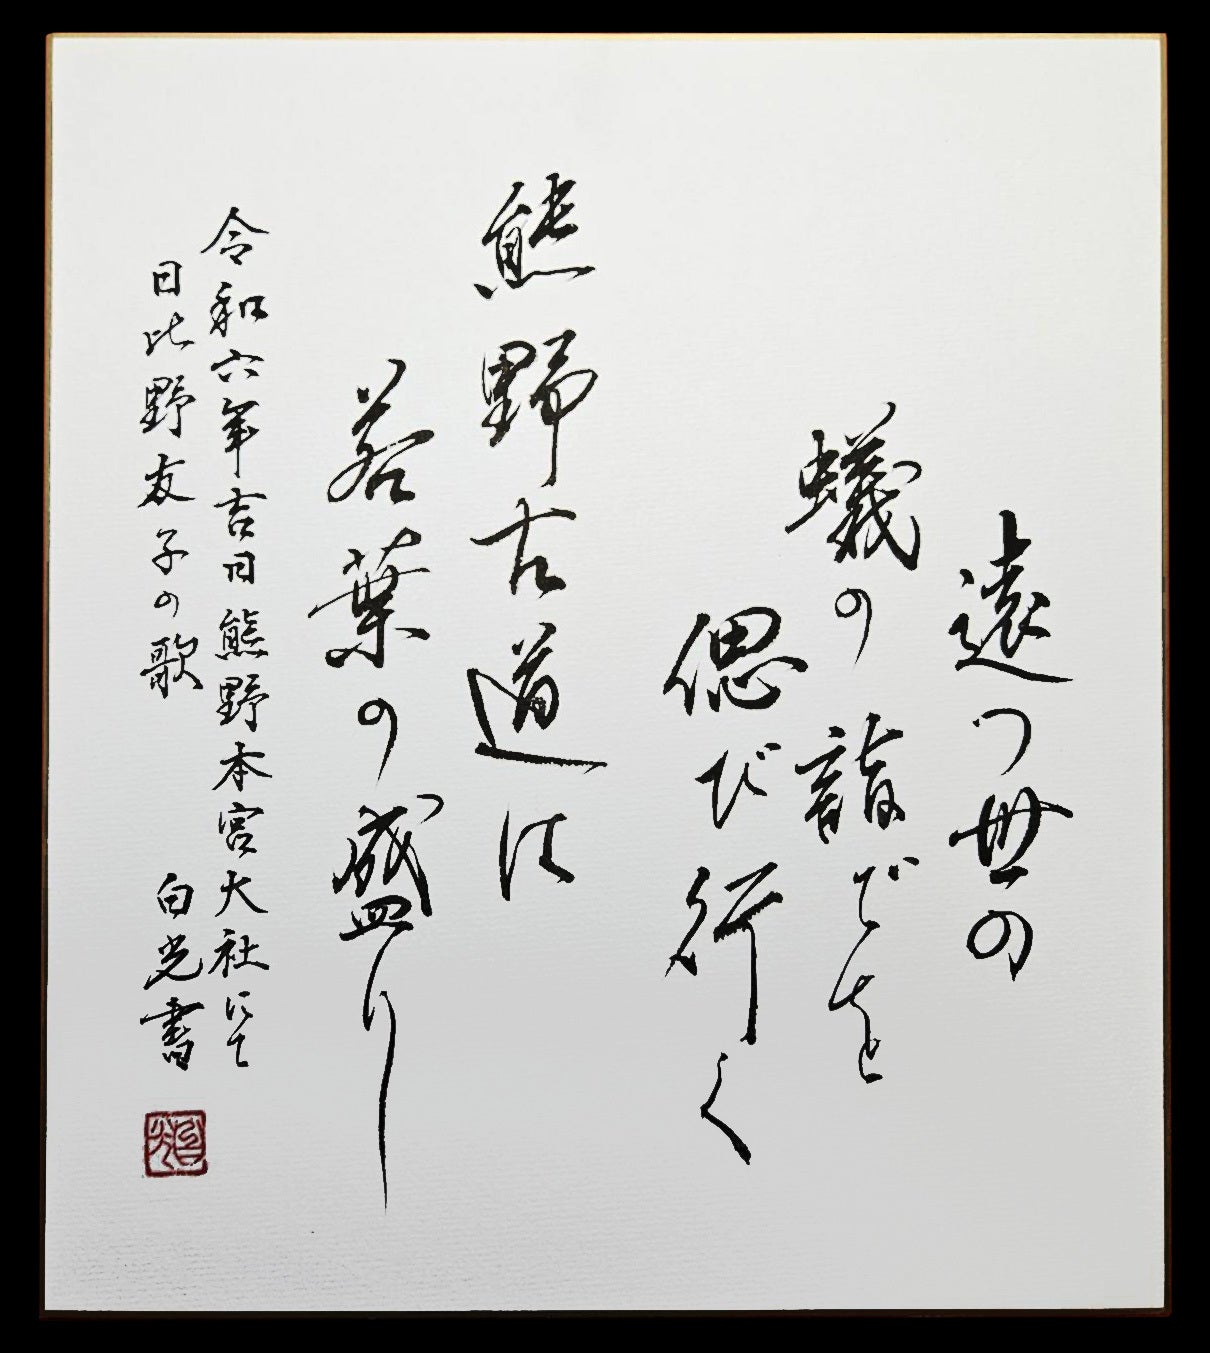 遠つ世の
蟻の詣でを
偲び行く
熊野古道は
若葉の盛り
令和六年吉日熊野本宮大社にて
日比野友子の歌 白光書